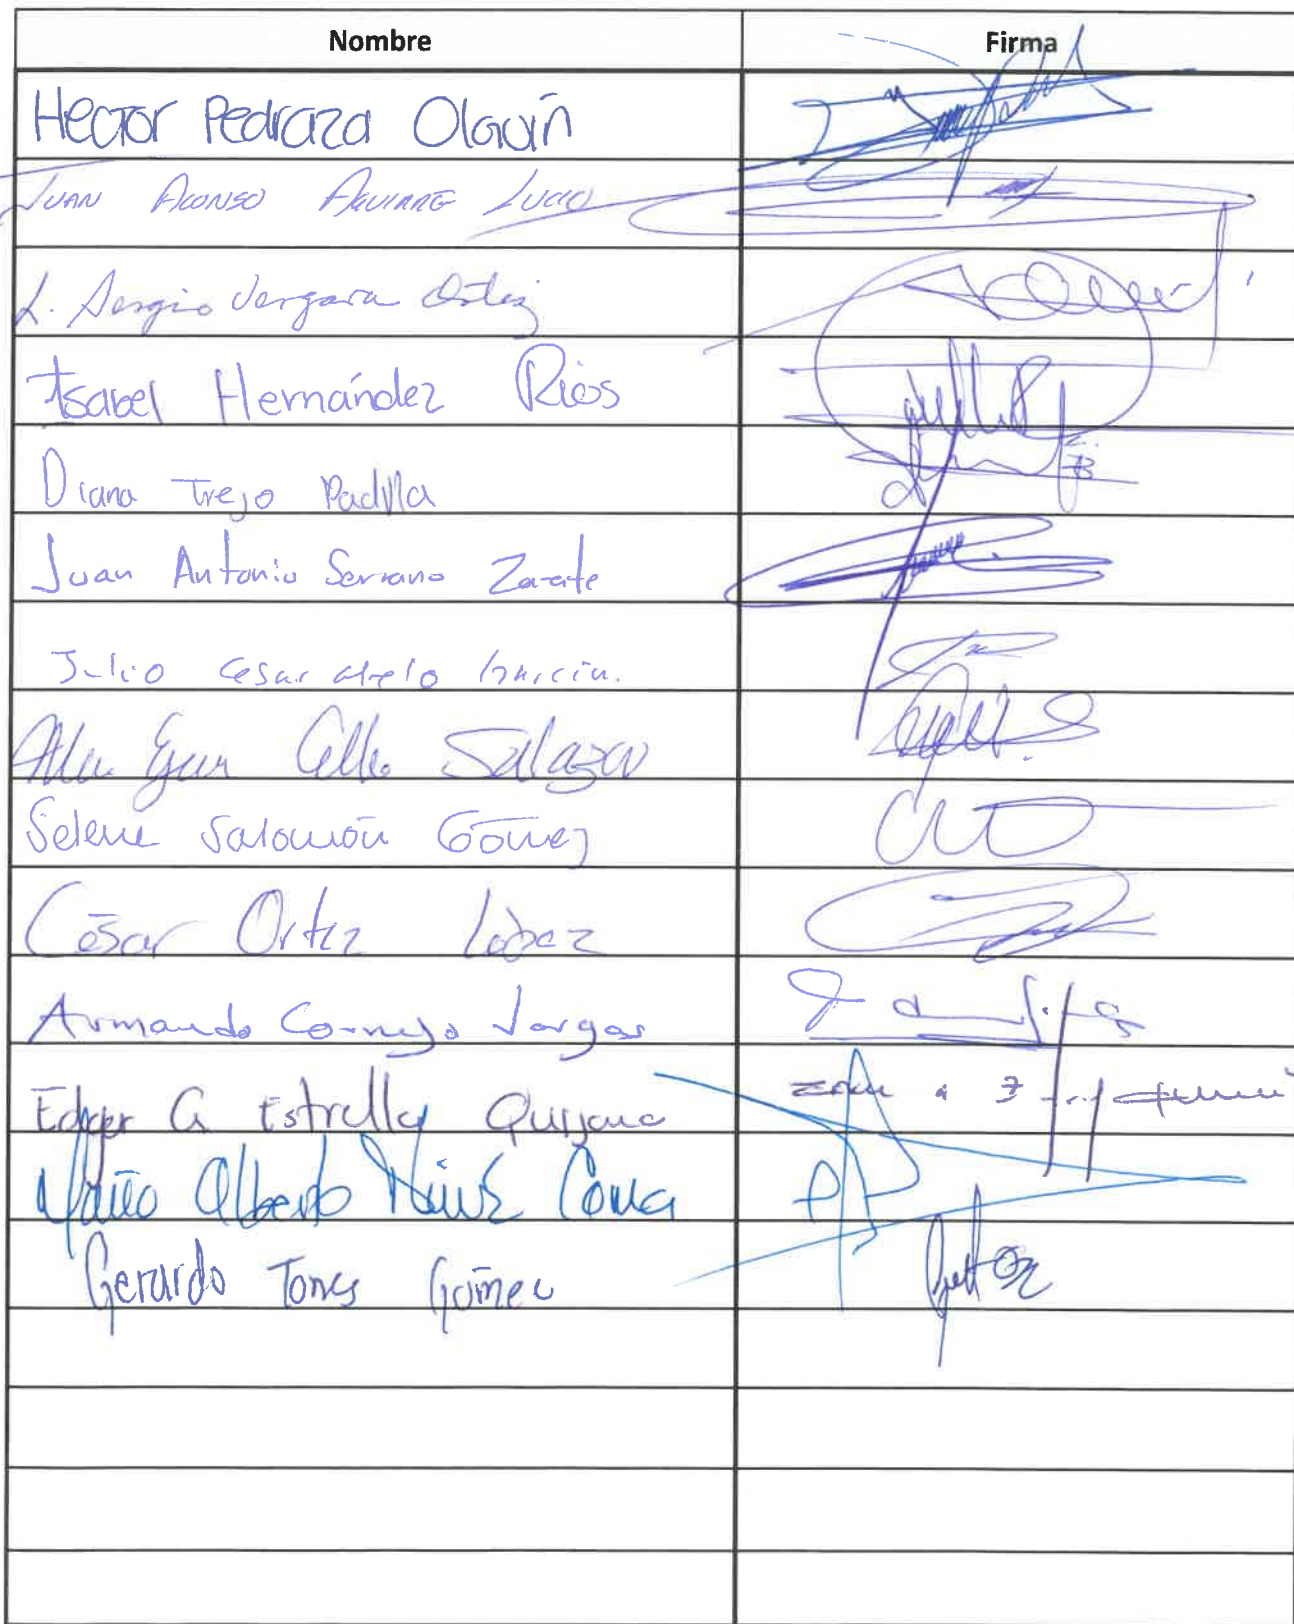 Nombre Firma
Hector Pedraza Olguín
JUAN ALONSO AGUIRRE LUCIO
L. Sergio Vergara Ortiz
Isabel Hernández Ríos
Diana Trejo Padilla
Juan Antonio Serrano Zarate
Julio Cesar
Salazar
Selene Salomón Gómez
César Ortiz López
Armando Cornejo Vargas
Edgar G Estrella Quijano
Mario Alberto
Gerardo Torres Gómez